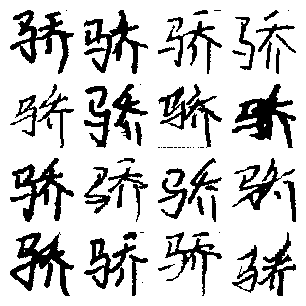 骄骄骄骄
骄骄骄骄
骄骄骄骄
骄骄骄骄